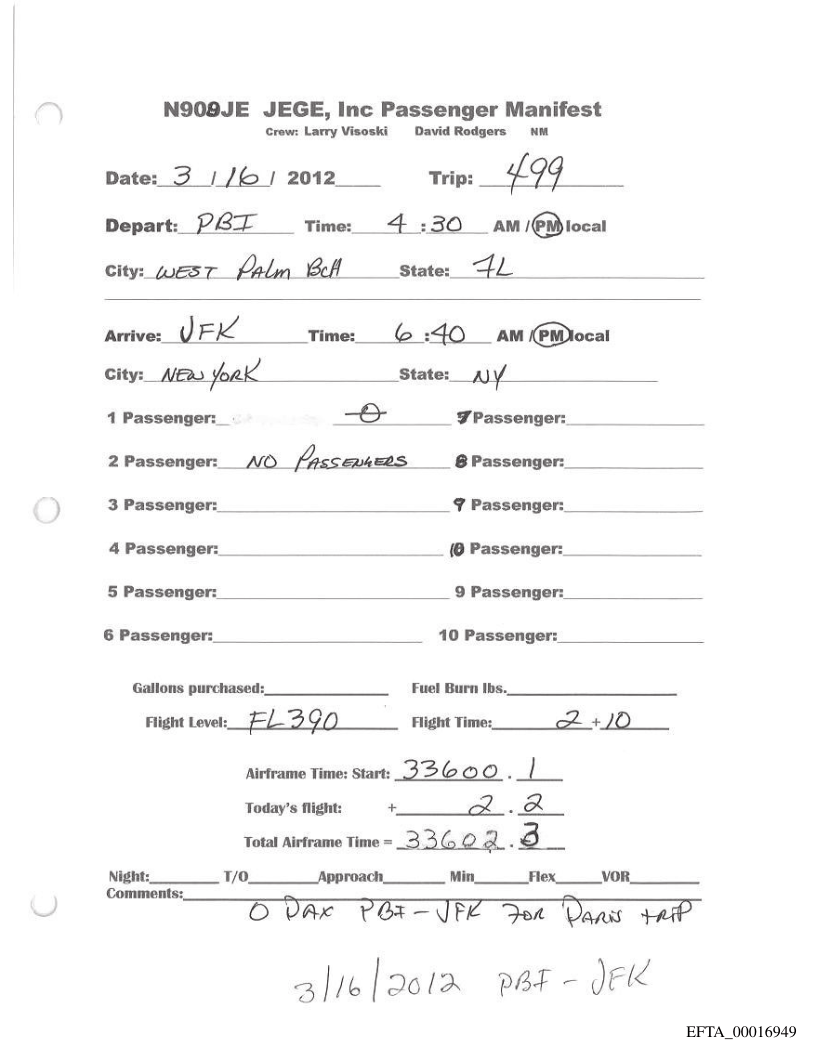 N908JE JEGE, Inc Passenger Manifest
Crew: Larry Visoski David Rodgers NM
Date: 3 / 16 / 2012 Trip: 499
Depart: PBI Time: 4 :30 AM / PM local
City: WEST PAlm BcH State: FL
Arrive: JFK Time: 6 :40 AM / PM local
City: NEW YORK State: NY
1 Passenger: 0 7 Passenger:
2 Passenger: NO PASSENGERS 8 Passenger:
3 Passenger: 9 Passenger:
4 Passenger: 10 Passenger:
5 Passenger: 9 Passenger:
6 Passenger: 10 Passenger:
Gallons purchased: Fuel Burn lbs.
Flight Level: FL390 Flight Time: 2 + 10
Airframe Time: Start: 33600 . 1
Today's flight: + 2 . 2
Total Airframe Time = 33602 . 3
Night: T/O Approach Min Flex VOR
Comments:
0 PAX PBI - JFK FOR PARIS TRIP
3/16/2012 PBI - JFK
EFTA_00016949